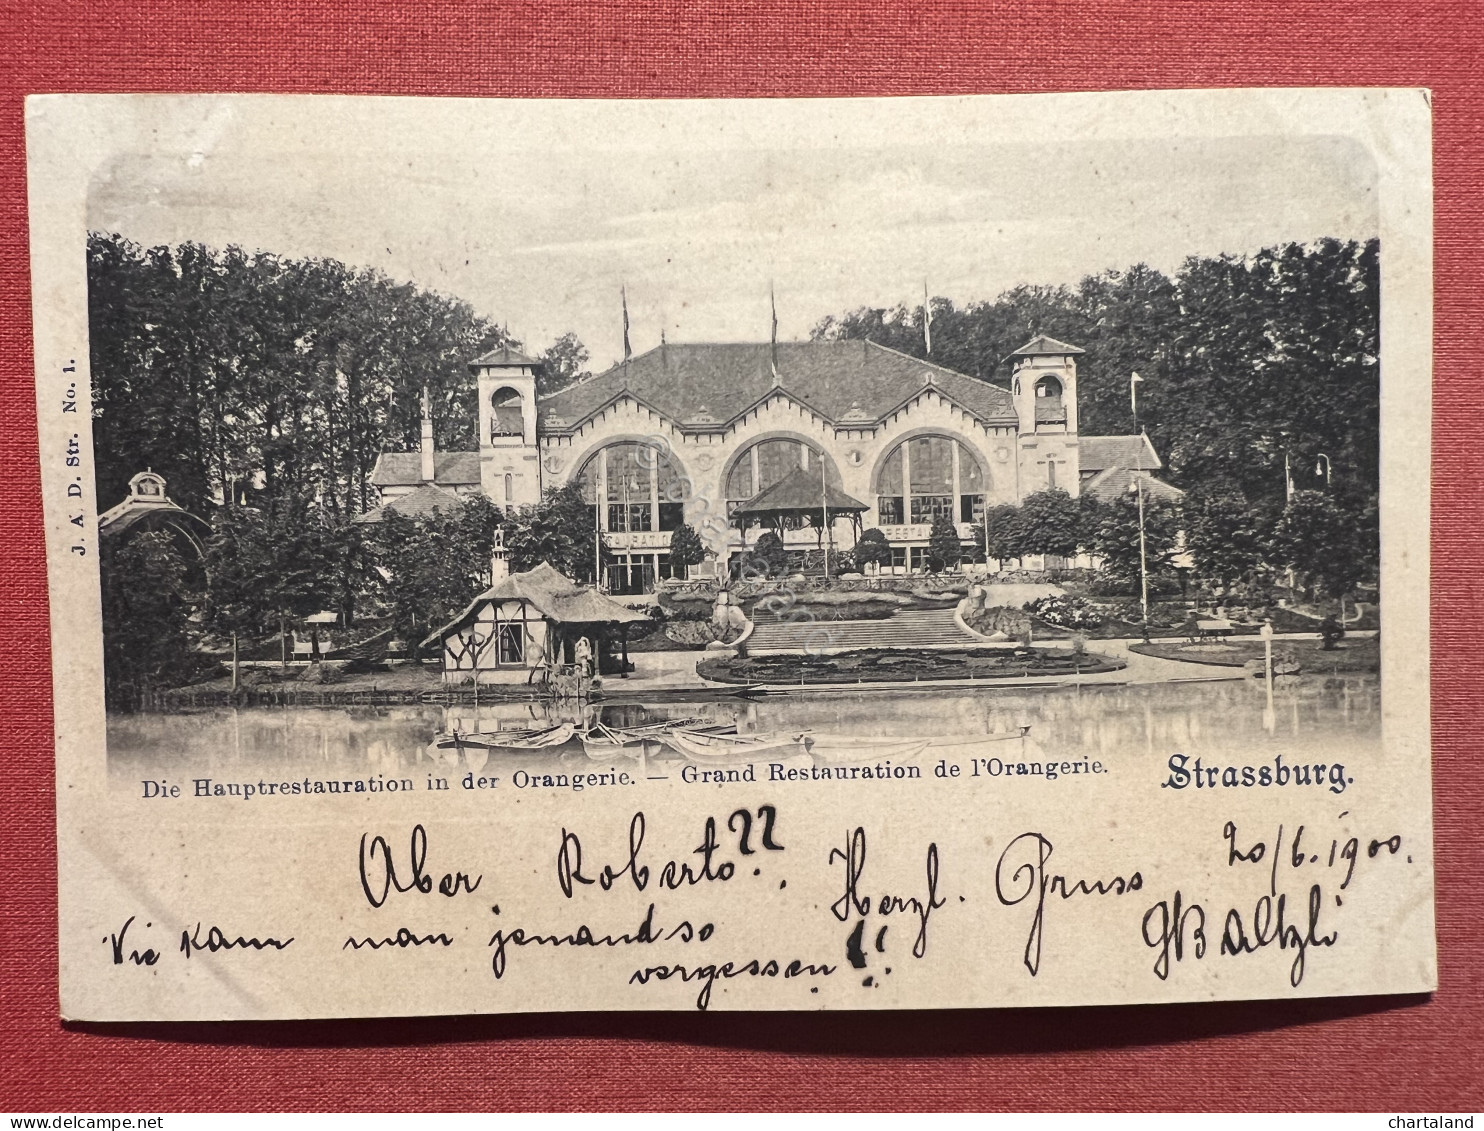 J. A. D. Str. No. 1.
RESTAU
Die Hauptrestauration in der Orangerie. — Grand Restauration de l'Orangerie.
Strassburg.
Aber Roberto??
Herzl. Gruss
20/6.1900.
Wie kann man jemand so
vergessen!!
GBaltzli
delcampe.net
chartaland